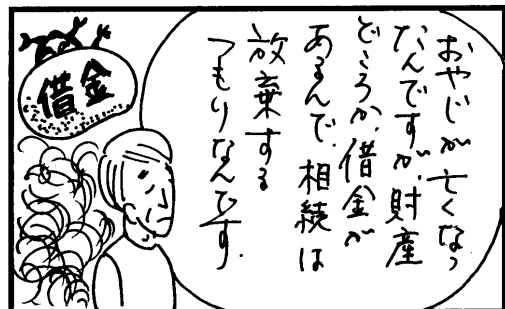 おやじが亡くなっ
たんですが、財産
どころか、借金が
あるんで、相続は
放棄する
つもりなんです.
借金